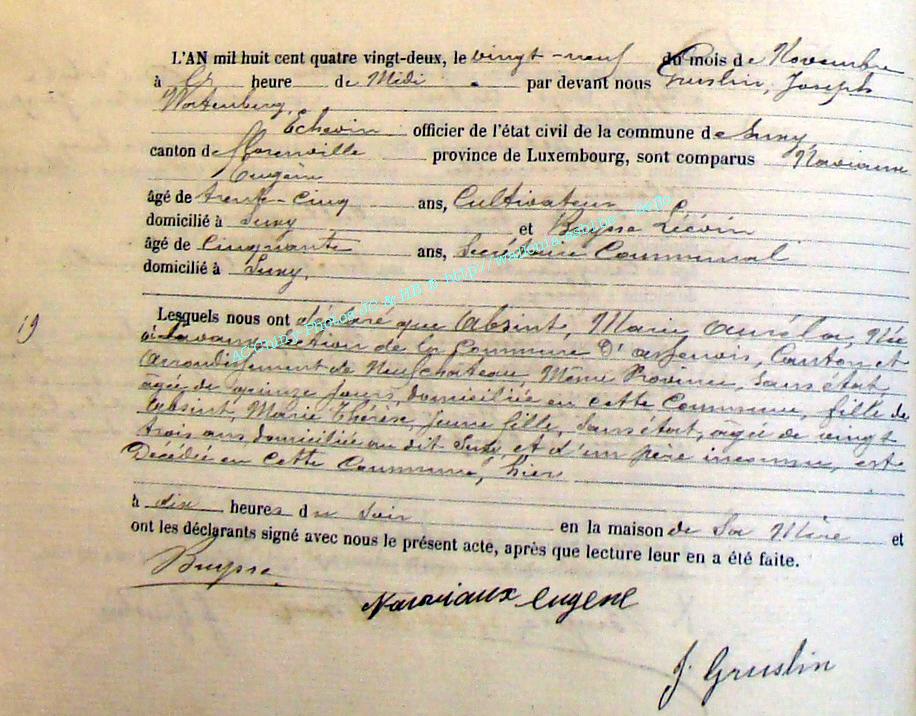 L'AN mil huit cent quatre vingt-deux, le vingt-neuf du mois de Novembre
à heure de Midi par devant nous Gruslin, Joseph
Échevin officier de l'état civil de la commune de Suxy
canton de Florenville province de Luxembourg, sont comparus
Eugène
âgé de trente-cinq ans, Cultivateur
domicilié à Suxy et Buysse Liévin
âgé de Cinquante ans, Secrétaire Communal
domicilié à Suxy,
19
Lesquels nous ont déclaré que Absint, Marie Née
section de la Commune D'assenois, Canton et
arrondissement de Neufchateau, Même Province, sans état,
agée de quinze jours, domiciliée en cette Commune, fille de
Absint, Marie Thérèse, jeune fille, sans état, agée de vingt
trois ans domiciliée au dit Suxy, et d'un père inconnu, est
Décédée en cette Commune, hier
à dix heures du soir en la maison de Sa Mère et
ont les déclarants signé avec nous le présent acte, après que lecture leur en a été faite.
Buysse
Eugene
J. Gruslin